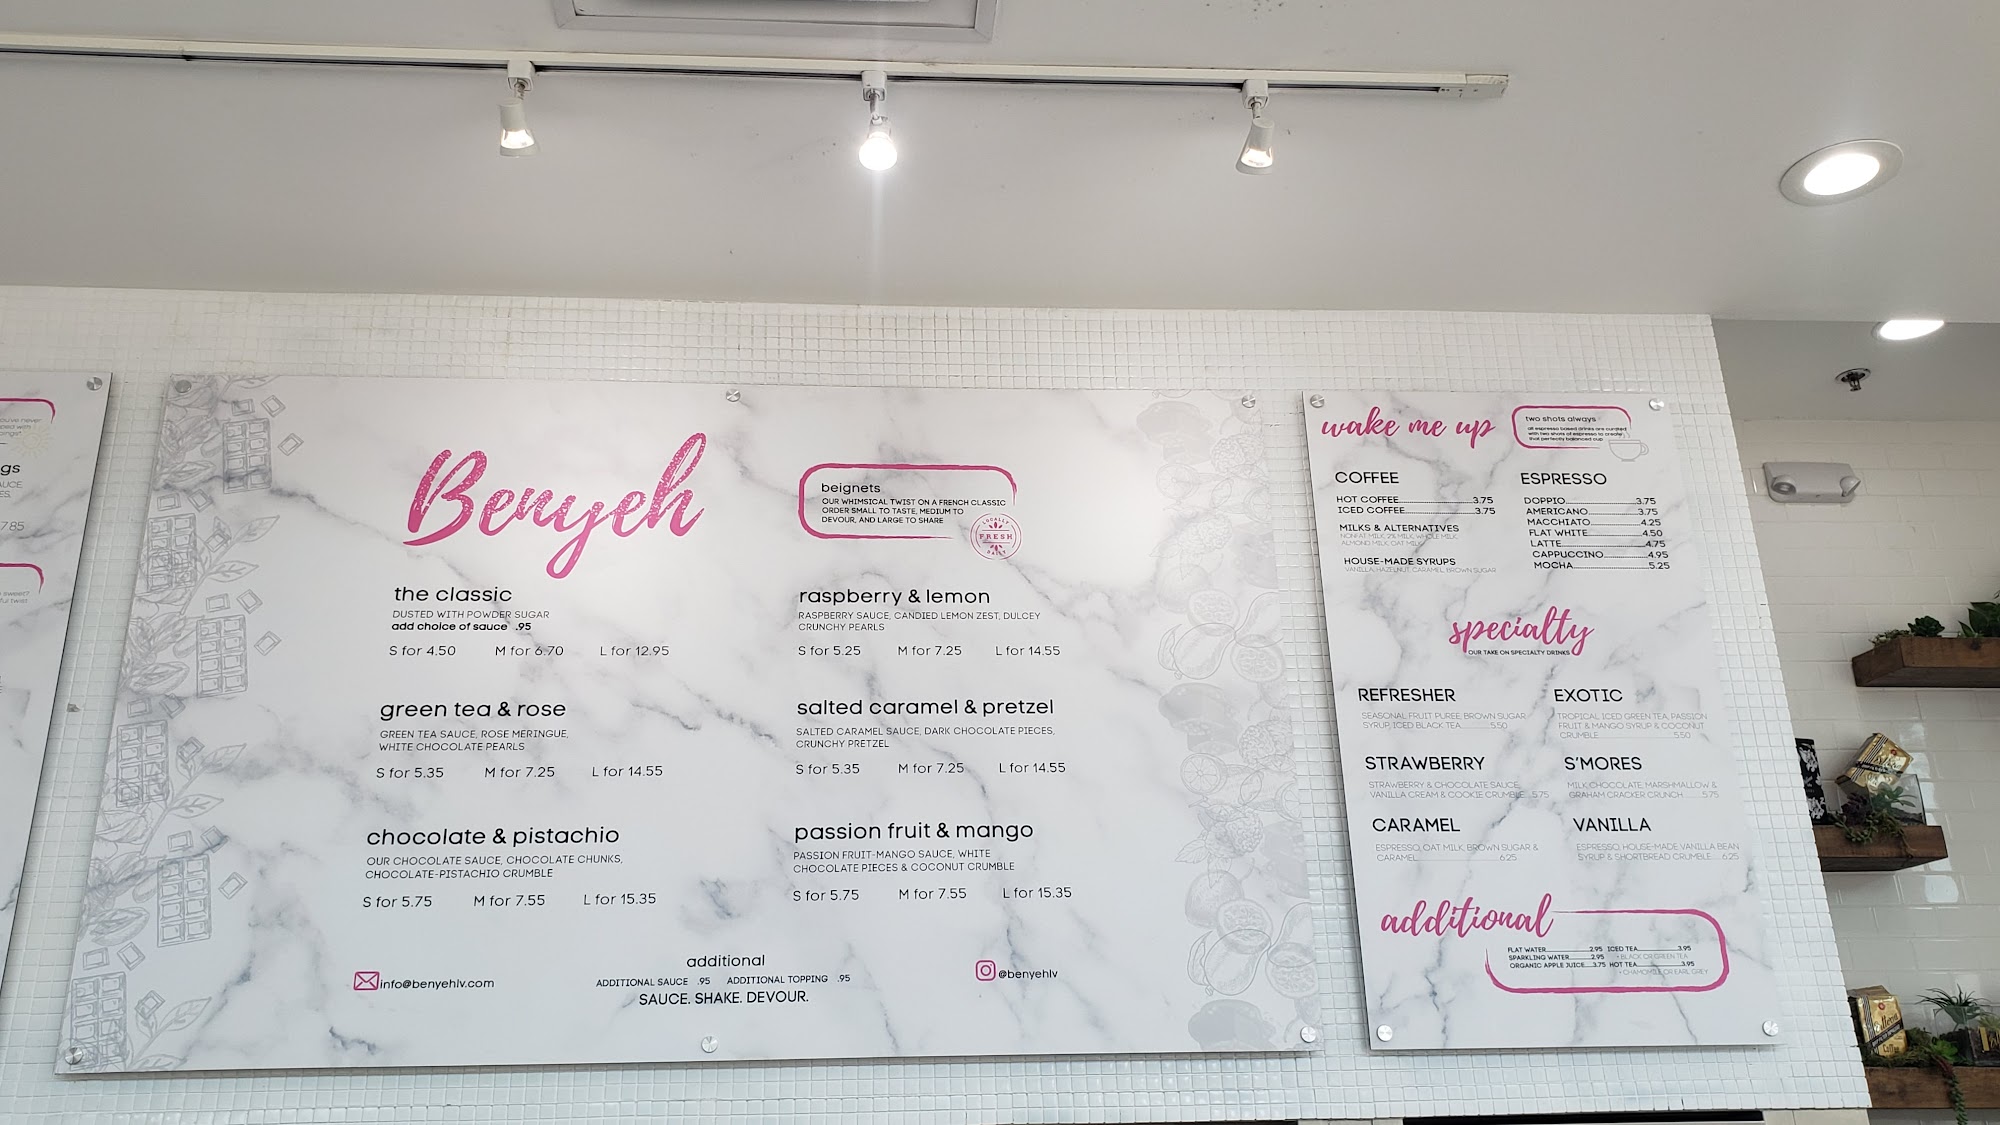 ou've never
ced with
pings"
gs
AUCE,
ES.
7.85
sweet?
ful twist
Benyeh
beignets
OUR WHIMSICAL TWIST ON A FRENCH CLASSIC
ORDER SMALL TO TASTE, MEDIUM TO
DEVOUR, AND LARGE TO SHARE
LOCALLY
FRESH
DAILY
the classic
DUSTED WITH POWDER SUGAR
add choice of sauce .95
S for 4.50 M for 6.70 L for 12.95
green tea & rose
GREEN TEA SAUCE, ROSE MERINGUE,
WHITE CHOCOLATE PEARLS
S for 5.35 M for 7.25 L for 14.55
chocolate & pistachio
OUR CHOCOLATE SAUCE, CHOCOLATE CHUNKS,
CHOCOLATE-PISTACHIO CRUMBLE
S for 5.75 M for 7.55 L for 15.35
raspberry & lemon
RASPBERRY SAUCE, CANDIED LEMON ZEST, DULCEY
CRUNCHY PEARLS
S for 5.25 M for 7.25 L for 14.55
salted caramel & pretzel
SALTED CARAMEL SAUCE, DARK CHOCOLATE PIECES,
CRUNCHY PRETZEL
S for 5.35 M for 7.25 L for 14.55
passion fruit & mango
PASSION FRUIT-MANGO SAUCE, WHITE
CHOCOLATE PIECES & COCONUT CRUMBLE
S for 5.75 M for 7.55 L for 15.35
additional
ADDITIONAL SAUCE .95 ADDITIONAL TOPPING .95
SAUCE. SHAKE. DEVOUR.
info@benyehlv.com
@benyehlv
wake me up
two shots always
all espresso based drinks are curated
with two shots of espresso to create
that perfectly balanced cup
COFFEE
HOT COFFEE 3.75
ICED COFFEE 3.75
MILKS & ALTERNATIVES
NONFAT MILK, 2% MILK, WHOLE MILK,
ALMOND MILK, OAT MILK
HOUSE-MADE SYRUPS
VANILLA, HAZELNUT, CARAMEL, BROWN SUGAR
ESPRESSO
DOPPIO 3.75
AMERICANO 3.75
MACCHIATO 4.25
FLAT WHITE 4.50
LATTE 4.75
CAPPUCCINO 4.95
MOCHA 5.25
specialty
OUR TAKE ON SPECIALTY DRINKS
REFRESHER
SEASONAL FRUIT PUREE, BROWN SUGAR
SYRUP, ICED BLACK TEA 5.50
EXOTIC
TROPICAL ICED GREEN TEA, PASSION
FRUIT & MANGO SYRUP & COCONUT
CRUMBLE 5.50
STRAWBERRY
STRAWBERRY & CHOCOLATE SAUCE,
VANILLA CREAM & COOKIE CRUMBLE 5.75
S'MORES
MILK CHOCOLATE, MARSHMALLOW &
GRAHAM CRACKER CRUNCH 5.75
CARAMEL
ESPRESSO, OAT MILK, BROWN SUGAR &
CARAMEL 6.25
VANILLA
ESPRESSO, HOUSE-MADE VANILLA BEAN
SYRUP & SHORTBREAD CRUMBLE 6.25
additional
FLAT WATER 2.95 ICED TEA 3.95
SPARKLING WATER 2.95 • BLACK OR GREEN TEA
ORGANIC APPLE JUICE 3.75 HOT TEA 3.95
• CHAMOMILE OR EARL GREY
Coffee